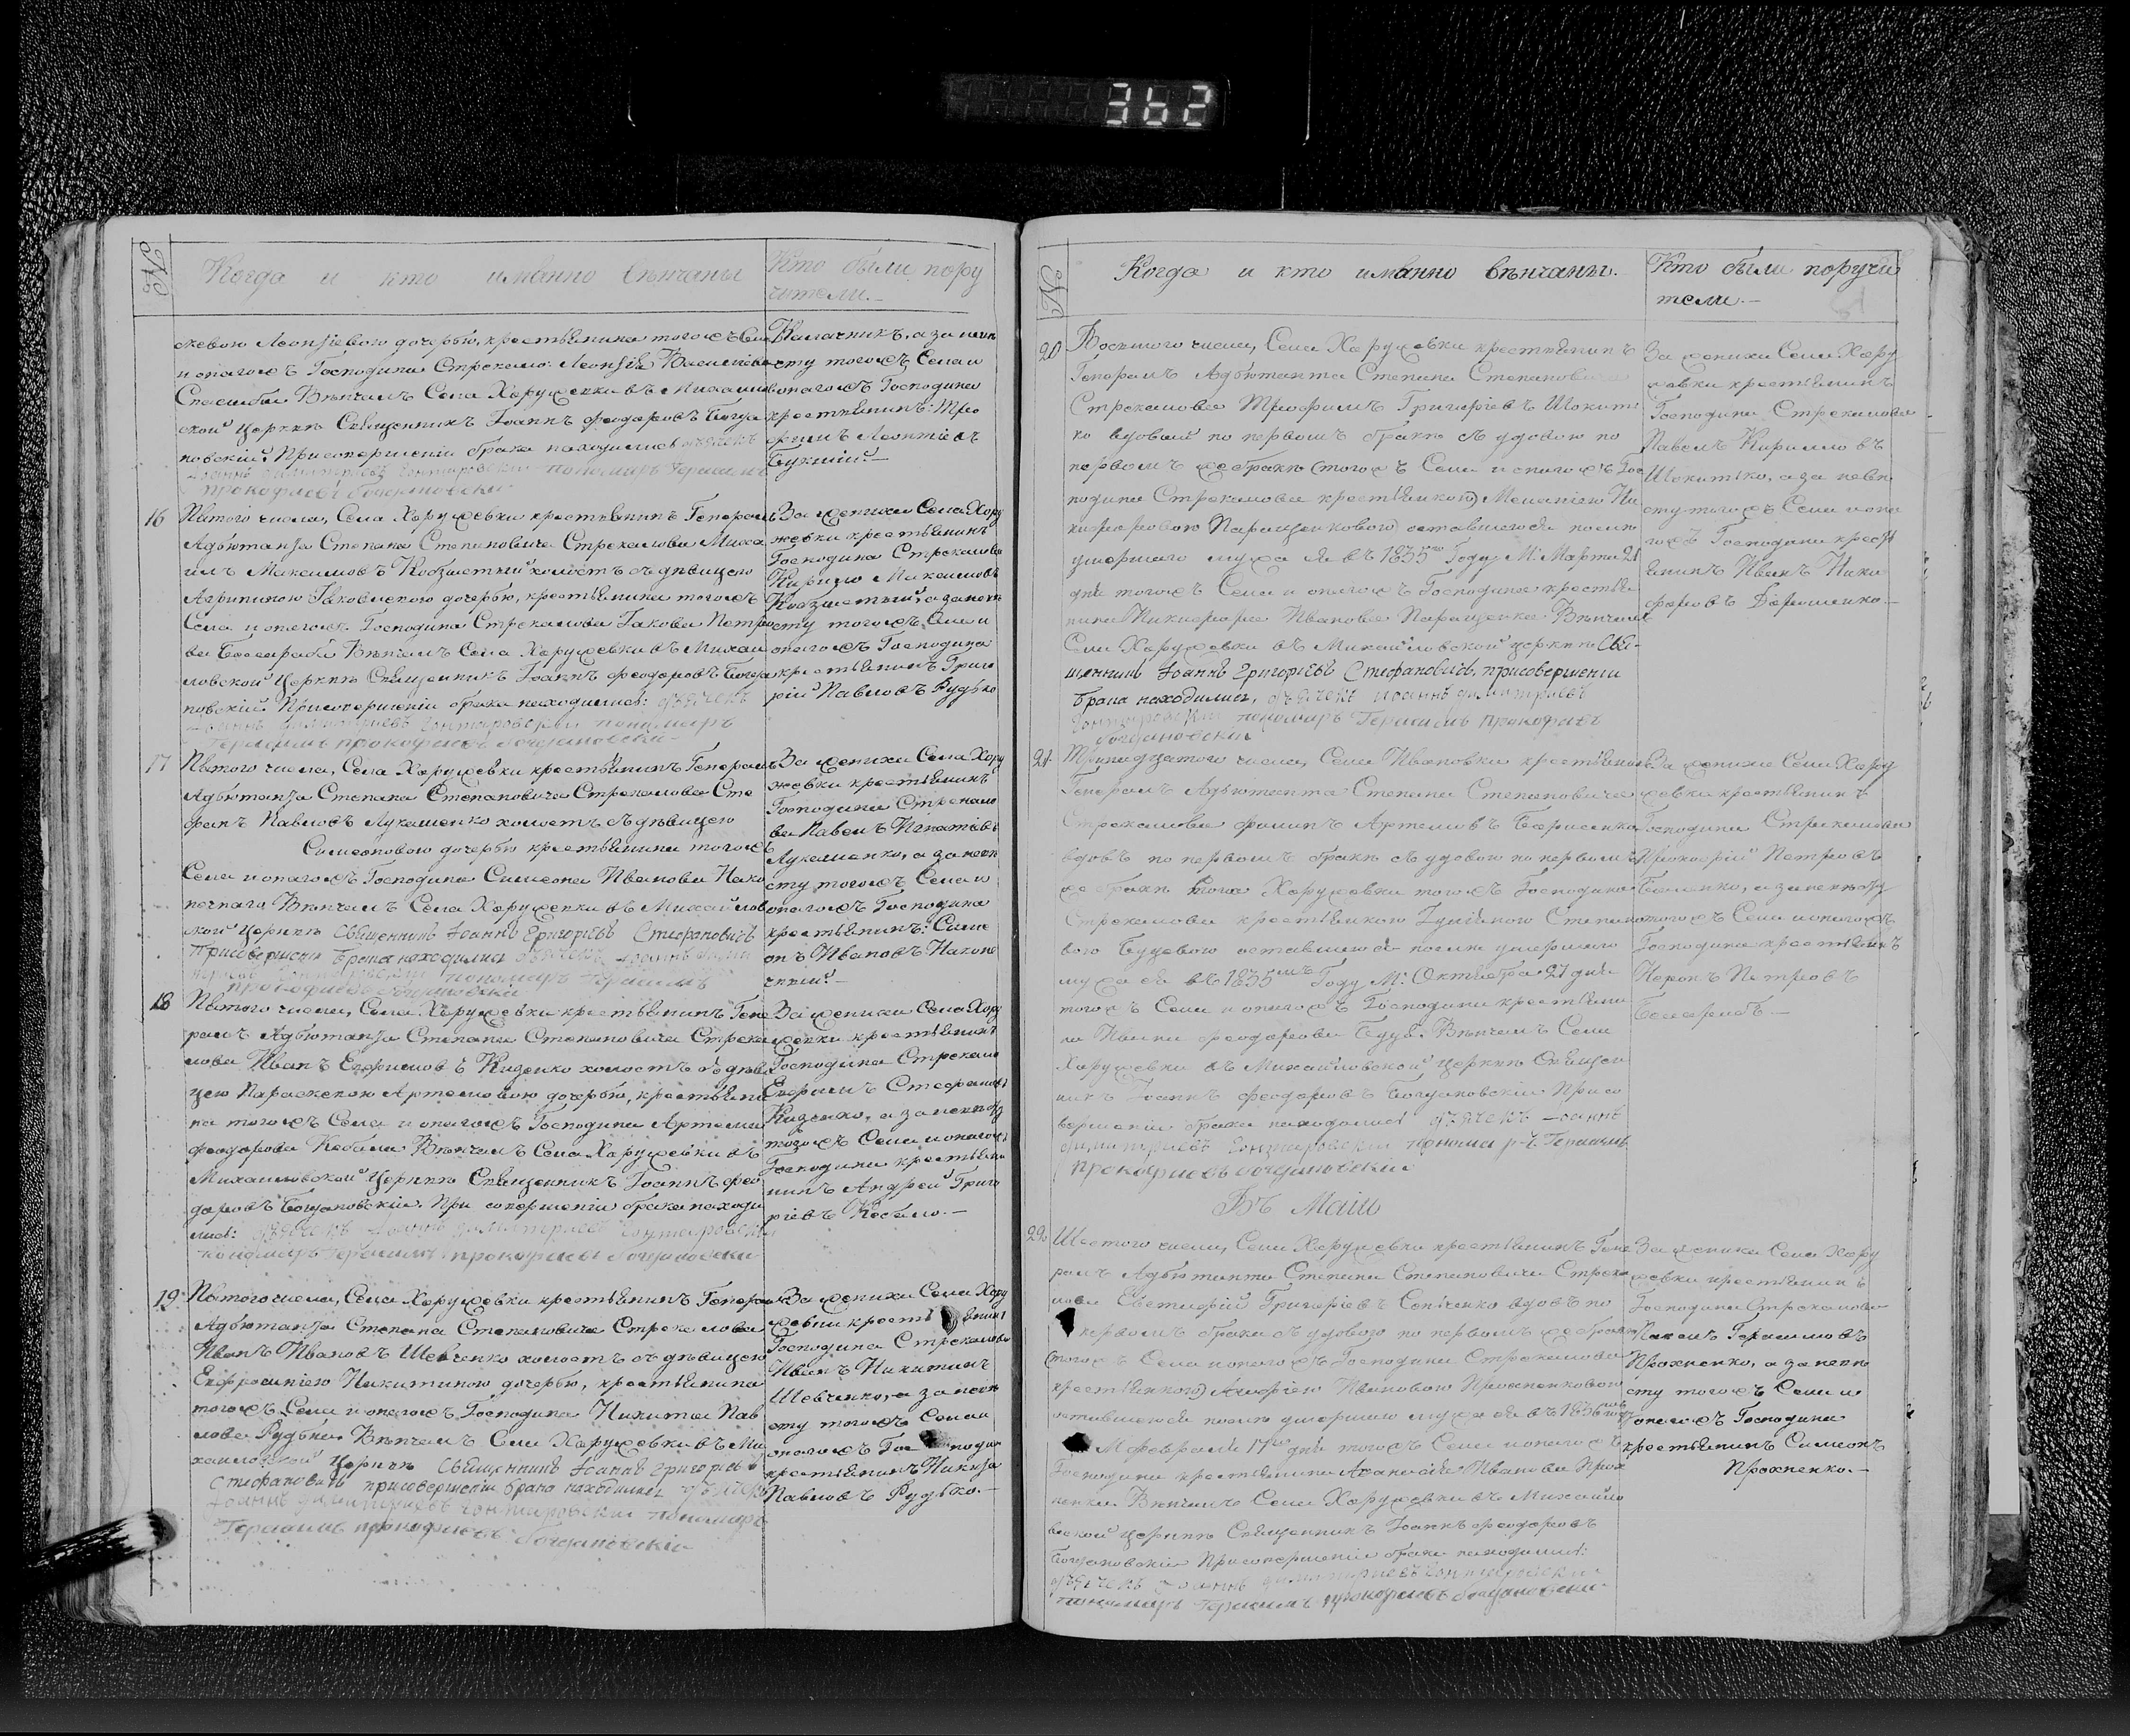 362
№
Когда и кто именно венчаны
Кто были пору
чители.
скевою Леонтіевою дочерью, крестьянина тогожъ Села
и онагожъ Господина Стрекалова Леонтія Василіева
Спасиба Венчалъ Села Харужевки въ Михаилов
ской церкви Священникъ Іоаннъ Феодоровъ Богда
новскій. При совершеніи брака находились дьячекъ
Іоаннъ Димитріевъ Гонтаровскій пономарь Герасимъ
Прокофіевъ Богдановскій
Калачникъ, а за неве
сту тогожъ Села и
онагожъ Господина
крестьянинъ: Тро
фимъ Леонтіевъ
16 Пятого числа, Села Харужевки крестьянинъ Генералъ
Адъютанта Степана Степановича Стрекалова Миха
илъ Максимовъ Кобзистый холостъ съ девицею
Агрипиною Іаковлевою дочерью, крестьянина тогожъ
Села и онагожъ Господина Стрекалова Іакова Петро
ва Басараба Венчалъ Села Харужевки въ Михаи
ловской Церкви Священникъ Іоаннъ Феодоровъ Богда
новскій. При совершеніи брака находились: дьячекъ
Іоаннъ Димитріевъ Гонтаровскій пономарь
Герасимъ Прокофіевъ Богдановскій
За жениха Села Хару
жевки крестьянинъ
Господина Стрекалова
Кирило Максимовъ
Кобзистый, а за неве
сту тогожъ Села и
онагожъ Господина
крестьянинъ Григо
рій Павловъ Рудько
17 Пятого числа, Села Харужевки крестьянинъ Генералъ
Адъютанта Степана Степановича Стрекалова Сте
фанъ Павловъ Лукашенко холостъ съ девицею
Симеоновою дочерью крестьянина тогожъ
Села и онагожъ Господина Симеона Иванова Нако
нечнаго Венчалъ Села Харужевки въ Михайлов
ской церкви Священникъ Іоаннъ Григоріевъ Стефановичъ
При совершеніи брака находились дьячекъ Іоаннъ Дими
тріевъ Гонтаровскій пономарь Герасимъ
Прокофіевъ Богдановскій
За жениха Села Хару
жевки крестьянинъ
Господина Стрекало
ва Павелъ Игнатіевъ
Лукашенко, а за неве
сту тогожъ Села и
онагожъ Господина
крестьянинъ: Симе
онъ Ивановъ Наконе
чный.
18 Пятого числа, Села Харужевки крестьянинъ Гене
ралъ Адъютанта Степана Степановича Стрека
лова Иванъ Ефремовъ Кизенко холостъ съ деви
цею Параскевою Артемовою дочерью, крестьяни
на тогожъ Села и онагожъ Господина Артема
Феодорова Кобали Венчалъ Села Харужевки въ
Михаиловской Церкви Священникъ Іоаннъ Фео
доровъ Богдановскій. При совершеніи брака находи
лись: дьячекъ Іоаннъ Димитріевъ Гонтаровскій
пономарь Герасимъ Прокофіевъ Богдановскій
За жениха Села Хару
жевки крестьянинъ
Господина Стрекало
Ефремъ Стефановъ
Кизенко, а за невесту
тогожъ Села и онагожъ
Господина крестьяни
нинъ Андрей Григо
ріевъ Кобало.
19. Пятого числа, Села Харужевки крестьянинъ Генералъ
Адъютанта Степана Степановича Стрекалова
Иванъ Ивановъ Шевченко холостъ съ девицею
Евфросиніею Никитиною дочерью, крестьянина
тогожъ Села и онагожъ Господина Никиты Пав
лова Рудька. Венчалъ Села Харужевки въ Ми
хаиловской Церкви Священникъ Іоаннъ Григоріевъ
Стефановичъ при совершеніи брака находились дьячекъ
Іоаннъ Димитріевъ Гонтаровскій пономарь
Герасимъ Прокофіевъ Богдановскій
За жениха Села Хару
жевки крестьянинъ
Господина Стрекалова
Иванъ Никитинъ
Шевченко, а за неве
сту тогожъ Села и
онагожъ Господина
крестьянинъ Никита
Павловъ Рудько.
№
Когда и кто именно венчаны.
Кто были поручи
тели.
20 Восьмого числа, Села Харужевки крестьянинъ
Генералъ Адъютанта Степана Степановича
Стрекалова Трофимъ Григоріевъ Шокит
ко вдовый по первомъ браке съ удовою по
первомъ же браке (тогожъ Села и онагожъ Гос
подина Стрекалова крестьянкою) Меланіею Ни
кифоровою Паращенковою оставшеюся после
умершаго мужа ея въ 1835мъ Году М: Марта 21
дня тогожъ Села и онагожъ Господина крестья
нина Никифора Иванова Паращенка. Венчалъ
Села Харужевки въ Михайловской церкви Свя-
щенникъ Іоаннъ Григоріевъ Стефановичъ, при совершеніи
брака находились, дьячекъ Иоаннъ Димитріевъ
Гонтаровскій пономарь Герасимъ Прокофіевъ
Богдановскій
За жениха Села Хару
жевки крестьянинъ
Господина Стрекалова
Павелъ Кириловъ
Шокитко, а за неве
сту тогожъ Села и она
гожъ Господина крест
янинъ Иванъ Ники
форовъ Дорошенко.
21. Тринадцатого числа, Села Ивановки крестьянинъ
Генералъ Адъютанта Степана Степановича
Стрекалова Филипъ Артемовъ Борисенко
вдовъ по первомъ браке съ удовою по первомъ
же браке Села Харужевки тогожъ Господина
Стрекалова крестьянкою Степано
вою Будевою оставшеюся после умершаго
мужа ея въ 1835мъ Году М: Октября 27 дня
тогожъ Села и онагожъ Господина крестьяни
на Ивана Феодорова Будя. Венчалъ Села
Харужевки въ Михайловской церкви Священ
никъ Іоаннъ Феодоровъ Богдановскій При со
вершеніи брака находились дьячекъ Іоаннъ
Димитріевъ Гонтаровскій пономарь Герасимъ
Прокофіевъ Богдановскій
За жениха Села Хару
жевки крестьянинъ
Господина Стрекалова
Прокофій Петровъ
а за невесту
тогожъ Села и онагожъ
Господина крестьянинъ
Петровъ
Басарабъ.
Въ Маіи
22. Шестого числа, Села Харужевки крестьянинъ Гене
ралъ Адъютанта Степана Степановича Стрека
лова Евстафій Григоріевъ Сопченко вдовъ по
первомъ браке съ удовою по первомъ же браке
(тогожъ Села и онагожъ Господина Стрекалова
крестьянкою) Маріею Ивановою Прохненковою
оставшеюся после умершаго мужа ея въ 1836мъ году
М Февраля 17го дня тогожъ Села и онагожъ
Господина крестьянина Афанасія Иванова Прох
ненка. Венчалъ Села Харужевки въ Михайло
вской церкви Священникъ Іоаннъ Феодоровъ
Богдановскій При совершеніи брака находились:
дьячекъ Іоаннъ Димитріевъ Гонтаровскій
пономарь Герасимъ Прокофіевъ Богдановскій
За жениха Села Хару
жевки крестьянинъ
Господина Стрекалова
Павелъ Герасимовъ
Прохненко, а за неве
сту тогожъ Села и
онагожъ Господина
крестьянинъ Симеонъ
Прохненко.